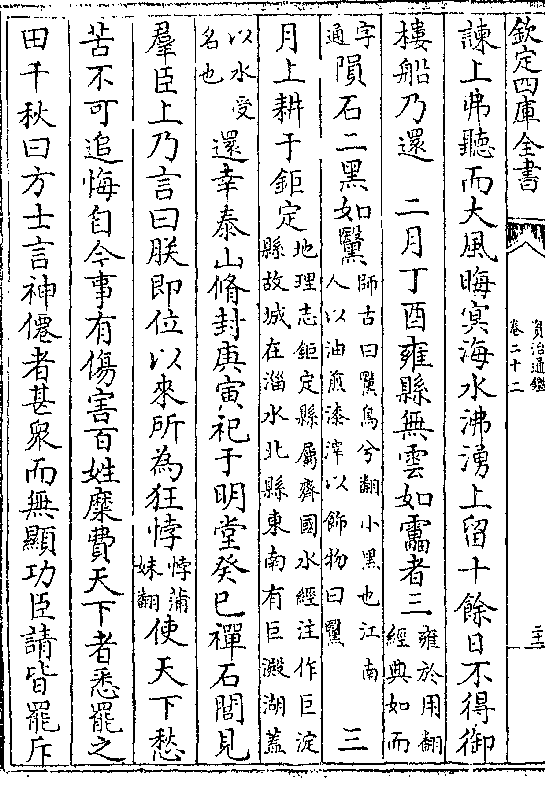 欽定四庫全書
資治通鑑
卷二十二
諫上弗聽而大風晦冥海水沸湧上留十餘日不得御
樓船乃還　二月丁酉雍縣無雲如靁者三雍於用翻經典如而
字通隕石二黑如黳師古曰黳烏兮翻小黑也江南人以油煎漆滓以飾物曰黳　三
月上耕于鉅定地理志鉅定縣屬齊國水經注作巨淀縣故城在淄水北縣東南有巨澱湖蓋
以水受名也還幸泰山脩封庚寅祀于明堂癸巳禪石閭見
羣臣上乃言曰朕即位以來所為狂悖悖蒲妹翻使天下愁
苦不可追悔自今事有傷害百姓糜費天下者悉罷之
田千秋曰方士言神僊者甚衆而無顯功臣請皆罷斥